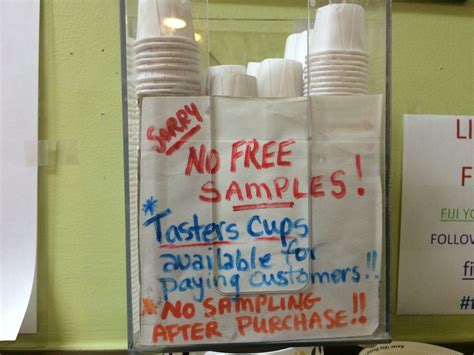 SORRY
NO FREE
SAMPLES!
* Tasters Cups
available for
paying customers!!
* NO SAMPLING
AFTER PURCHASE!!
LI
F
FIJI YO
FOLLOW
fi